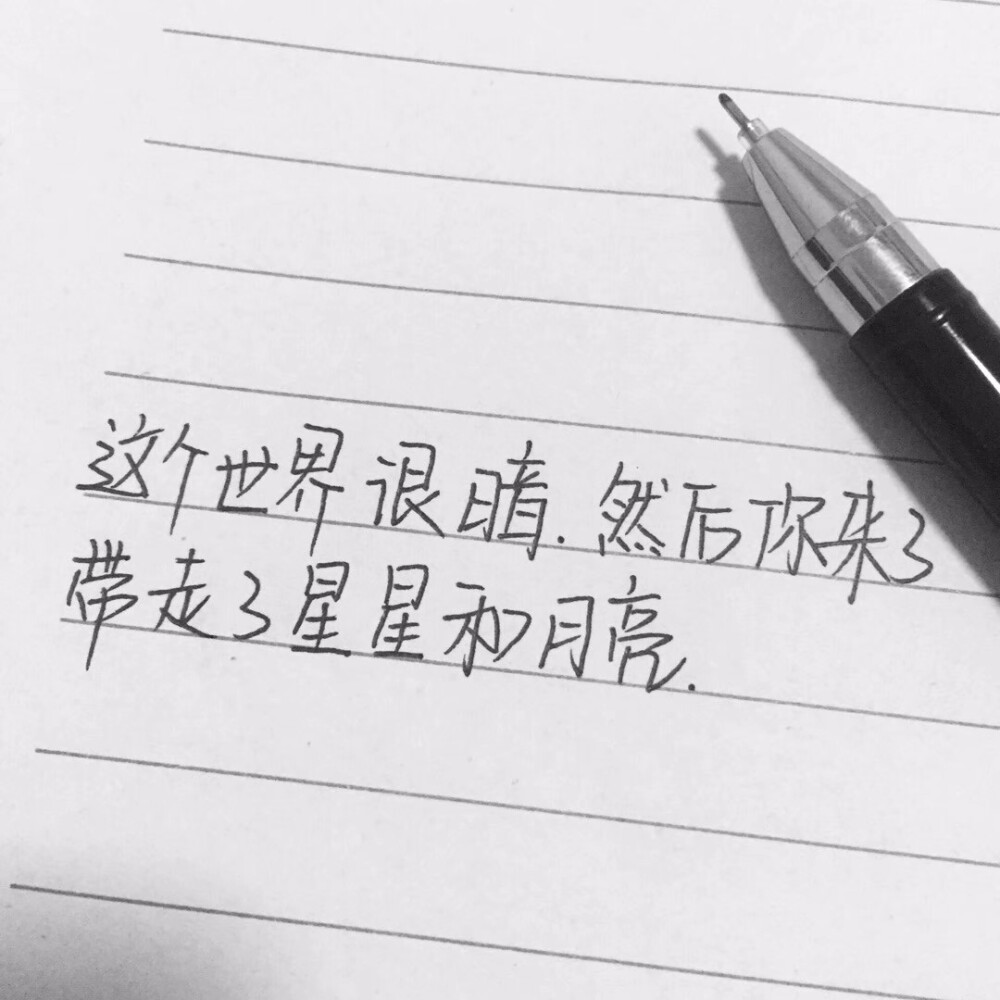 这个世界很暗.然后你来了
带走了星星和月亮.